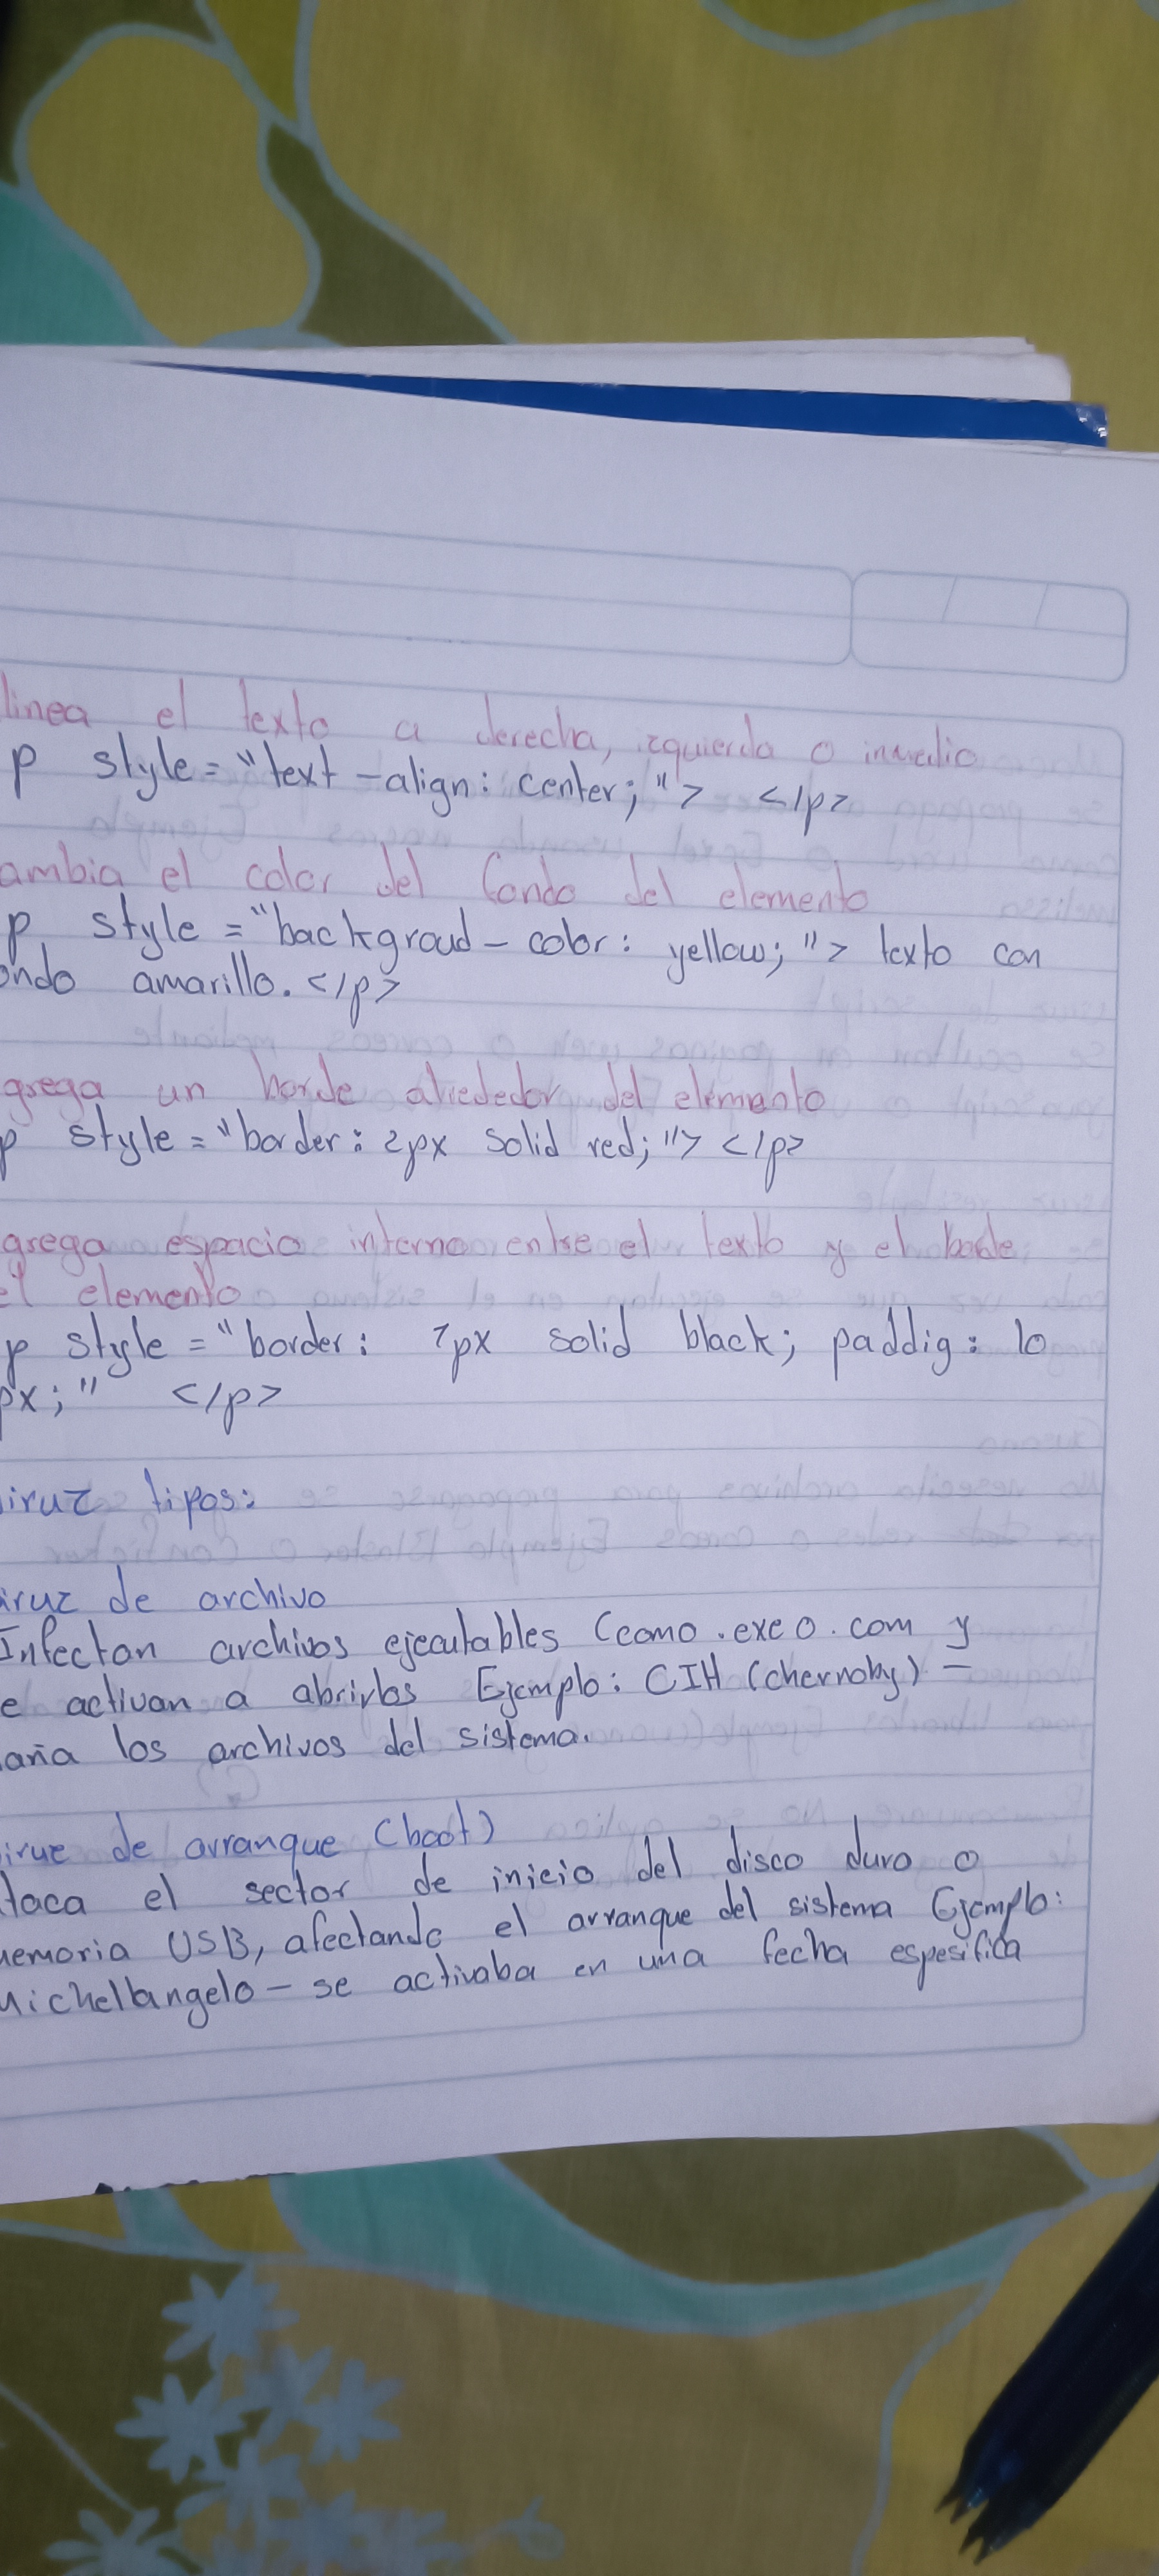 linea el texto a derecha, izquierda o inmedio
p style="text-align: center;"> </p>
ambia el color del fondo del elemento
p style="backgroud-color: yellow;"> texto con
ondo amarillo.</p>
grega un borde alrededor del elemento
p style="border: 2px solid red;"> </p>
grega espacio interno entre el texto y el borde
el elemento
p style="border: 1px solid black; paddig: 10
px;" </p>
iruz tipos:
iruz de archivo
Infectan archivos ejecutables (como .exe o .com y
e activan a abrirlos Ejemplo: CIH (chernoby) -
aña los archivos del sistema.
iruz de arranque (boot)
taca el sector de inicio del disco duro o
memoria USB, afectando el arranque del sistema Ejemplo:
Michelangelo - se activaba en una fecha espesifica